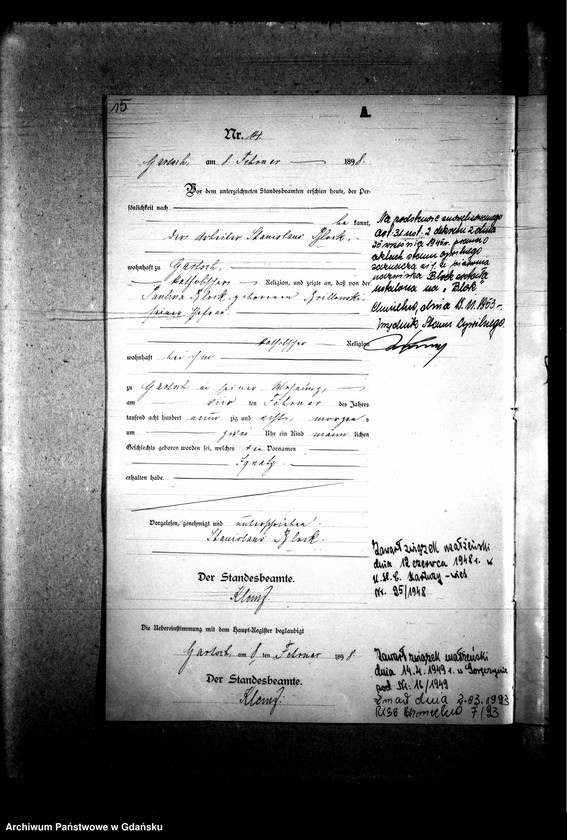 15
A.
Nr. 14.
Gartsch, am 8. Februar 1898.
Vor dem unterzeichneten Standesbeamten erschien heute, der Per-
sönlichkeit nach
be kannt,
der Arbeiter Stanislaus Block,
wohnhaft zu Gartsch,
katholischer Religion, und zeigte an, daß von der
Paulina Block geborenen
seiner Ehefrau
katholischer Religion
wohnhaft bei ihm
zu Gartsch in seiner Wohnung,
am vier ten Februar des Jahres
tausend acht hundert neun zig und acht, morgens
um Uhr ein Kind männ lichen
Geschlechts geboren worden sei, welches den Vornamen
Ignatz
erhalten habe.
Vorgelesen, genehmigt und unterschrieben.
Stanislaus Block.
Der Standesbeamte.
Klomf.
Die Uebereinstimmung mit dem Haupt-Register beglaubigt
Gartsch, am 8 ten Februar 1898
Der Standesbeamte.
Klomf.
Na podstawie
art. 31 ust. 2 dekretu z dnia
25 września 1945r. prawo o
aktach stanu cywilnego
że pisownia
nazwiska Block została
ustalona na „Blok”
Chmielno, dnia 18.11.1953
Urzędnik Stanu Cywilnego
Zawarł związek małżeński
dnia 12 czerwca 1948 r. w
U.S.C. Kartuzy-wieś
Nr. 25/1948
Zawarł związek małżeński
dnia 14.4.1949 r. w Gorzęczynie
pod Nr. 16/1949
Zmarł dnia 2.03.1993
Chmielno 7/93
Archiwum Państwowe w Gdańsku